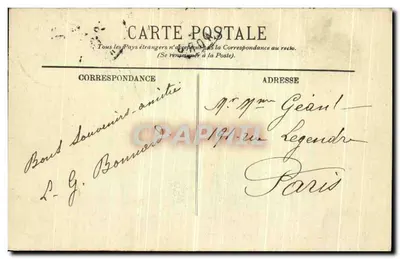 CARTE POSTALE
Tous les Pays étrangers n'acceptent pas la Correspondance au recto.
(Se renseigner à la Poste).
CORRESPONDANCE
Bons Souvenirs amitié
L. G. Bonnard
ADRESSE
Mr Mme Géant
rue Legendre
Paris
CPAPHIL